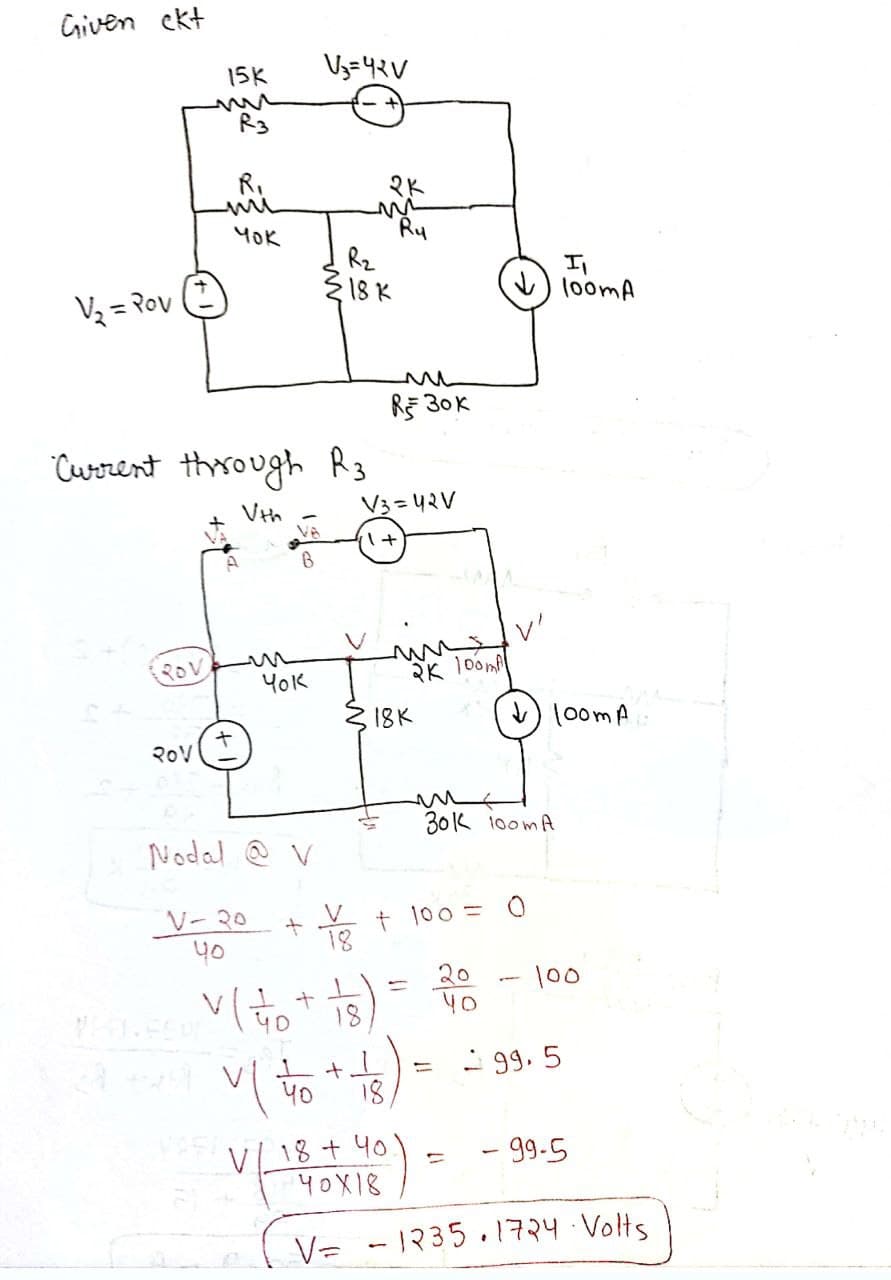 Given ckt
15K V3=42V
R3
- +
R1 2K
40K R4
R2
18K
I1
100mA
V2=20V
+
-
R5=30K
Current through R3
+ Vth - V3=42V
VA VB
A B
- +
V V'
20V
40K 2K 100mA
18K
100mA
20V
+
-
30K 100mA
Nodal @ V
V-20/40 + V/18 + 100 = 0
V(1/40 + 1/18) = 20/40 - 100
V(1/40 + 1/18) = -99.5
V(18+40/40X18) = -99.5
V= -1235.1724 Volts